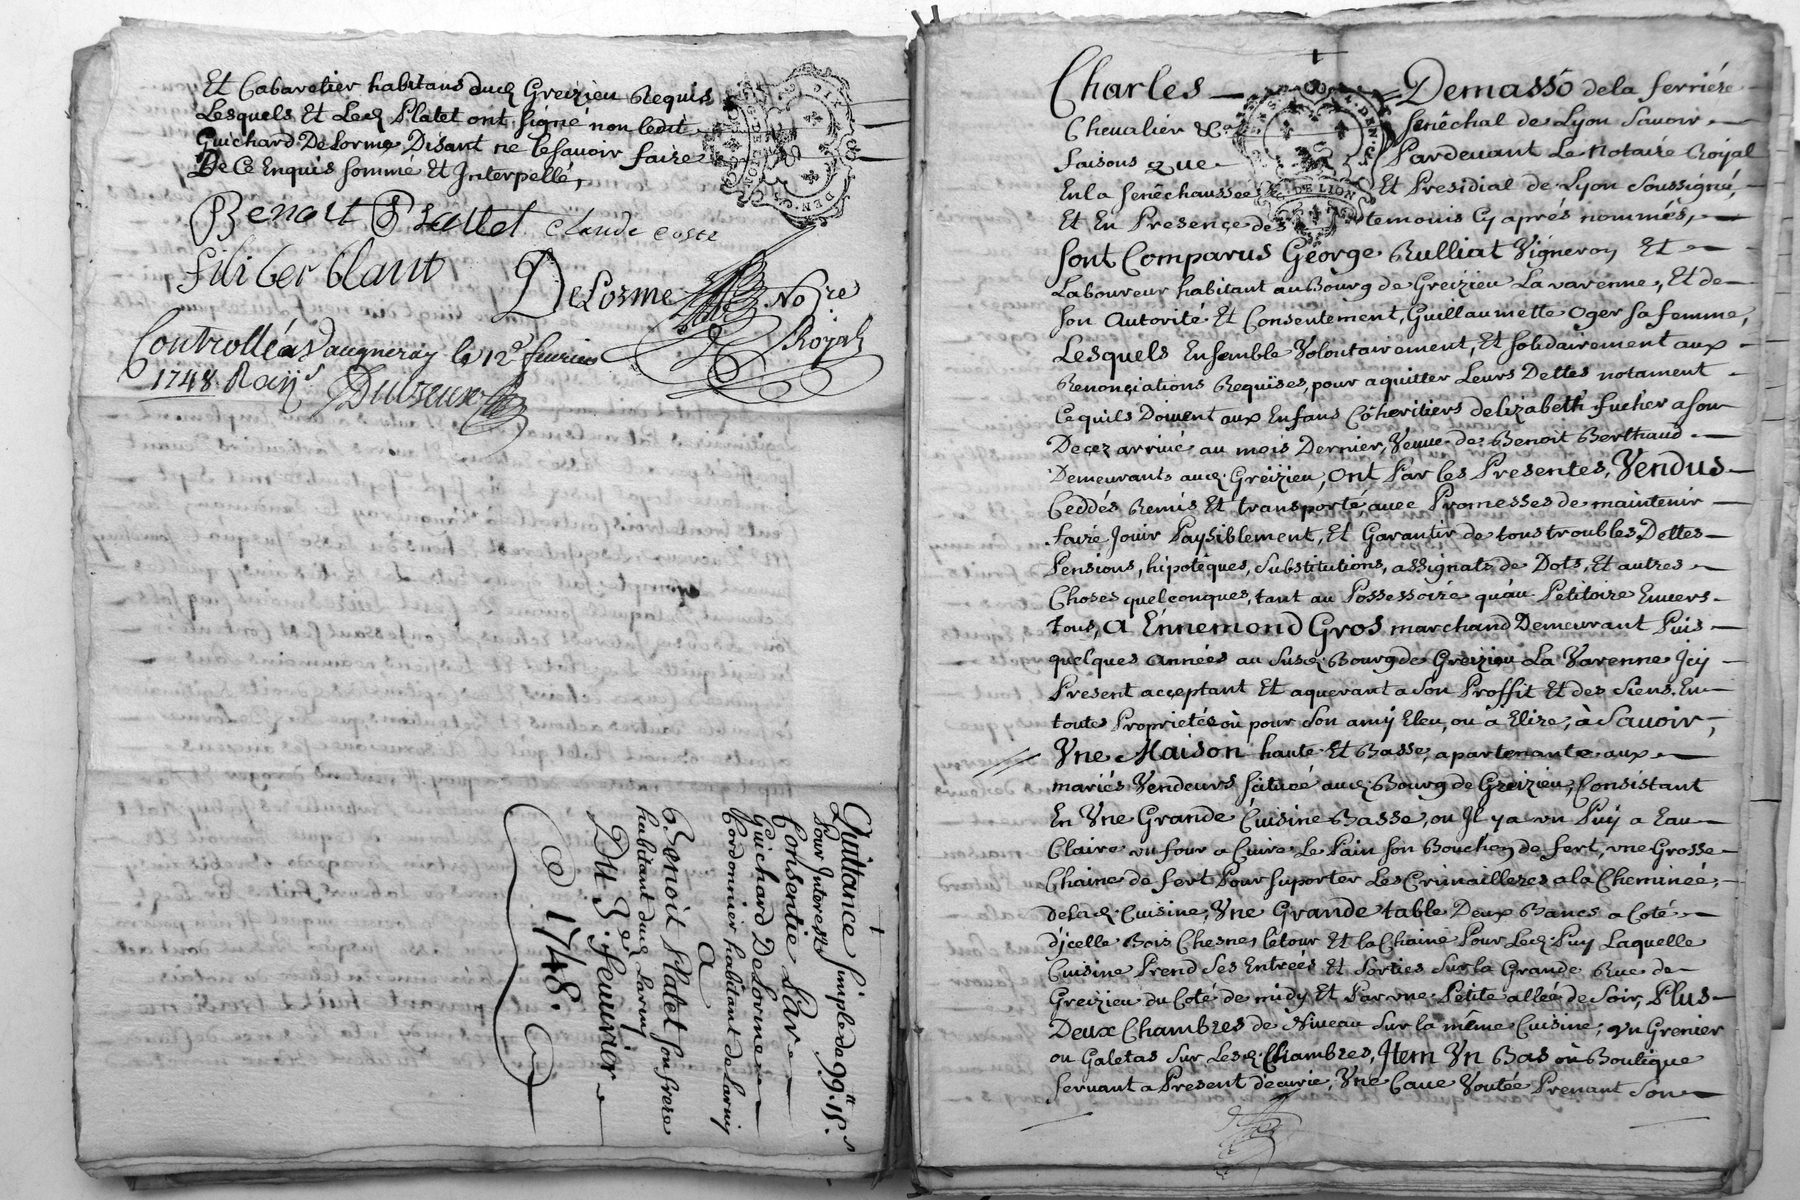 Et Cabaretier habitans aud. Greizieu Requis
Lesquels Et Led. Platet ont signé non ledit
Guichard DeLorme Disant ne le savoir faire
De Ce Enquis sommé Et Interpellé,
Benoit Platet Claude Coste
filiber blanc
DeLorme No.re
Royal
Controllé a Vaugneray le 12e fevrier
1748. R
Quittance simple de 99.tt 15.s
Pour Interests
Consentie Par
Guichard DeLorme
Cordonnier habitant de Larny
A
Benoit Platet son frere
habitant dud. Larny
Du 3.e feuvrier
1748.
DIX DEN.
G. DE LION
Charles Demasso de la ferriére
Chevalier &c.a senêchal de Lyon Savoir
faisons que Pardevant Le Notaire Royal
En la senêchaussée Et Presidial de Lyon soussigné,
Et En Presence des temoins cy aprés nommés,
sont Comparus George Rulliat Vigneron Et
Laboureur habitant au Bourg de Greizieu La varenne, Et de
son Autorité Et Consentement, Guillaumette Oger sa femme,
Lesquels Ensemble Volontairement, Et solidairement aux
Renonciations Requises, pour aquitter Leurs Dettes notament
Ce quils Doivent aux Enfans Cohéritiers delizabeth fucher a son
Decez arrivé au mois Dernier, Veuve de Benoit Berthaud
Demeurants aud. Greizieu, ont Par les Presentes, Vendus
Ceddés Remis Et transporté avec Promesses de maintenir
faire Jouir Paysiblement, Et Garantir de tous troubles, Dettes
Pensions, hipoteques, substitutions, assignats de Dots, Et autres
Choses quelconques, tant au Possessoire qu'au Petitoire Envers
tous, A Ennemond Gros marchand Demeurant Puis
quelques années au susd. Bourg de Greizieu La Varenne Jcy
Present acceptant Et aquerant a son Proffit Et des siens, En
toutes Proprietés où pour son amy Eleu, ou a Elire, à Savoir,
Vne Maison haute Et Basse, apartenante aux
mariés Vendeurs situeé aud. Bourg de Greizieu, Consistant
En Vne Grande Cuisine Basse, ou Jl ya un Puy a Eau
Claire un four a Cuire Le Pain son Bouchon de fert, vne Grosse
Chaine de fert Pour suporter Les Crimailleres a la Cheminée,
de lad. Cuisine, Vne Grande table Deux Bancs a Coté
d'jcelle Bois Chesne, letour Et la Chaine Pour Led. Puy Laquelle
Cuisine Prend ses Entrées Et sorties sur la Grande Rue de
Greizieu du Coté de midy Et Par vne Petite alleé de Soir, Plus
Deux Chambres de Niveau sur la même Cuisine; Vn Grenier
ou Galetas sur Lesd. Chambres, Jtem Vn Bas où Boutique
servant a Present d'écurie, Vne Cave Voutée Prenant Son